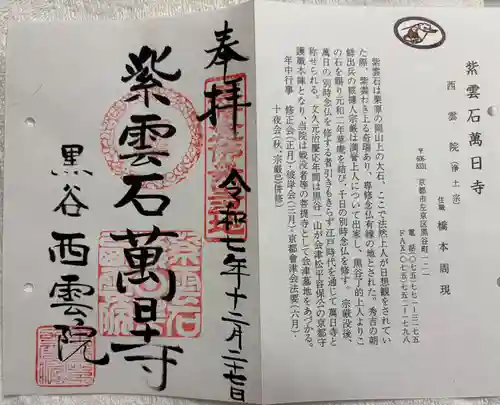 紫雲石萬日寺
西雲院（浄土宗）
住職 橋本周現
〒606-8331 京都市左京区黒谷町一二一
電話〇七五-七七一-三一七五
FAX〇七五-七五二-一七九八
紫雲石は栗原の岡山上の大石、ここで法然上人が日想観をされてい
た際、紫雲わき上る奇瑞あり、専修念仏有縁の地とされた。秀吉の朝
鮮出兵の捕擄人宗厳は満誉上人について出家し、黒谷了的上人よりこ
の石を賜り元和二年草庵を結び、千日の別時念仏を修す。宗厳没後、
萬日の別時念仏を修する者引きもきらず江戸時代を通じて萬日寺と
称せられる。文久元治慶応年間は黒谷一山が会津松平容保公の京都守
護職本陣となり、当院は戦没者等の菩提寺として会津墓地をあづかる。
年中行事 修正会（正月）・彼岸会（三月）・京都會津会法要（六月）・
十夜会（秋、宗厳忌併修）
奉拝 令和七年十二月二十七日
紫雲石萬日寺
黒谷西雲院